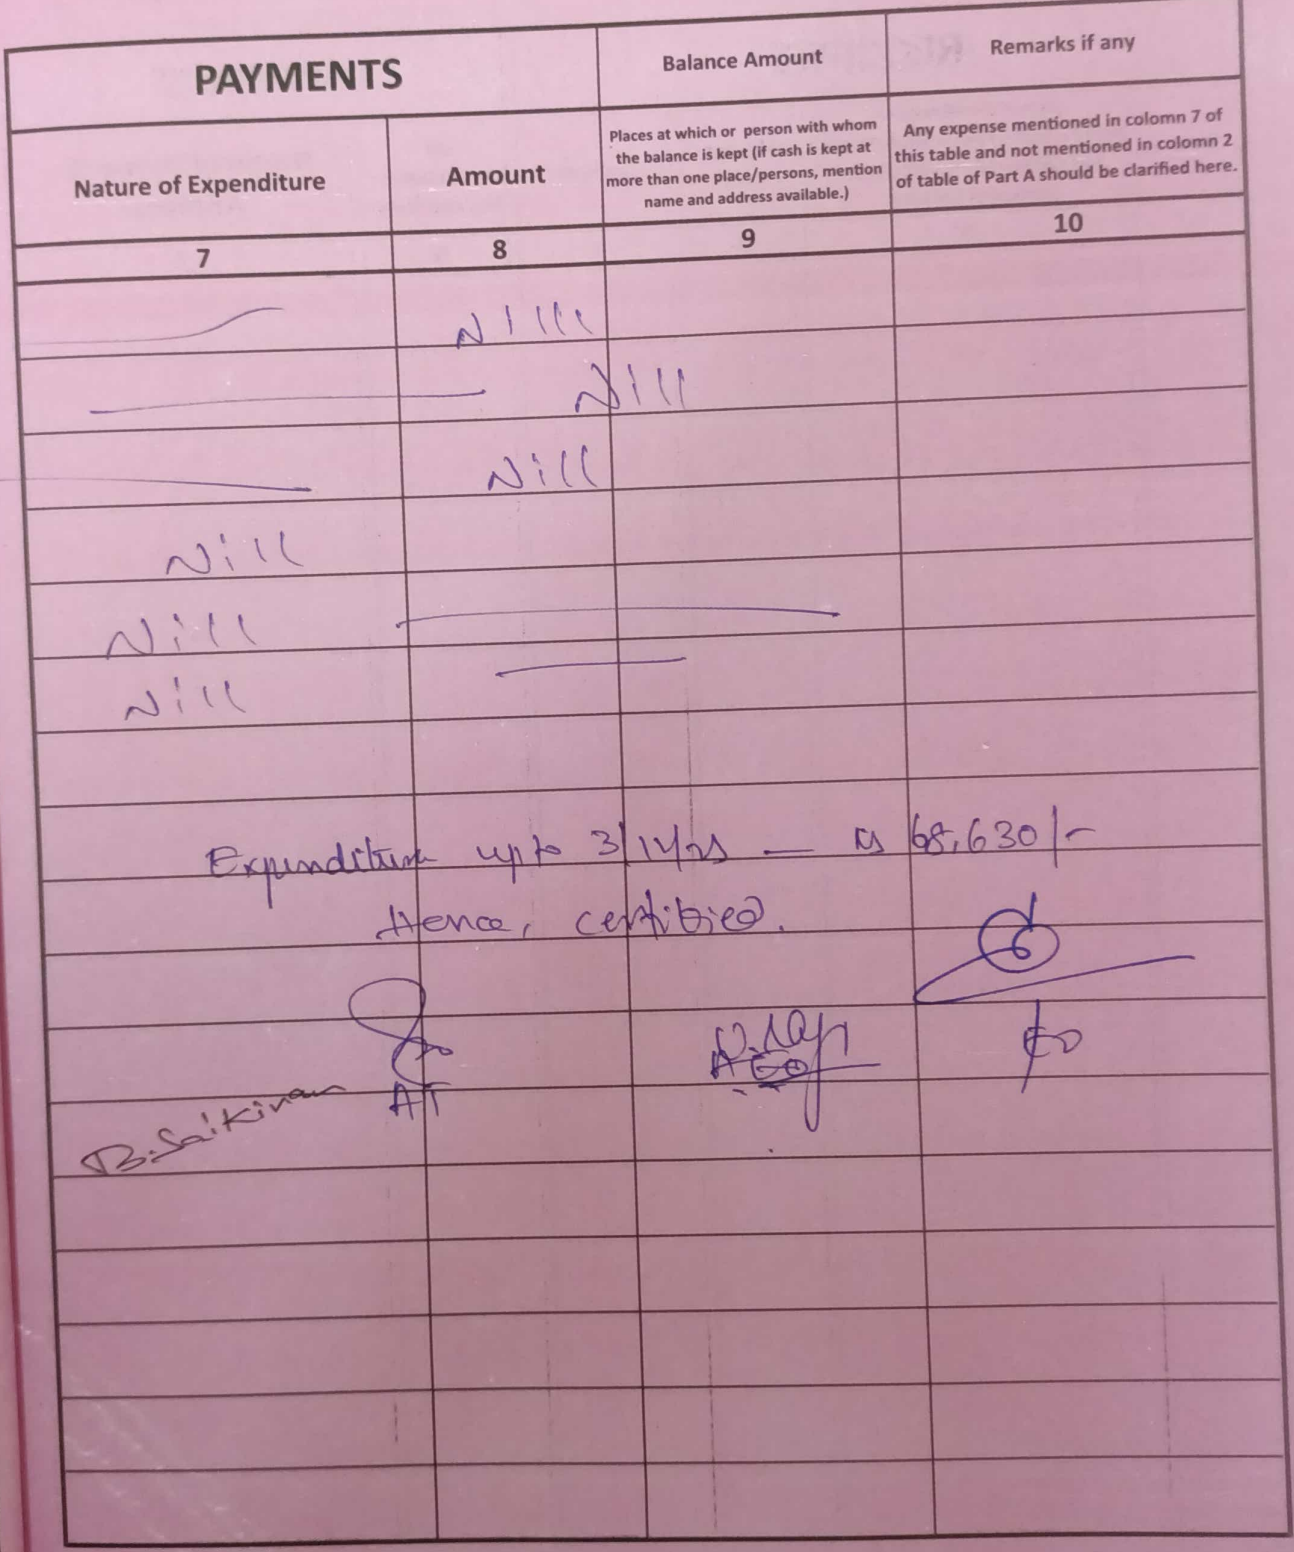 PAYMENTS
Balance Amount
Remarks if any
Nature of Expenditure
Amount
Places at which or person with whom
the balance is kept (if cash is kept at
more than one place/persons, mention
name and address available.)
Any expense mentioned in colomn 7 of
this table and not mentioned in colomn 2
of table of Part A should be clarified here.
7
8
9
10
Nill
Nill
Nill
Nill
Nill
Nill
Expenditure upto — 68,630/-
Hence, certified.
AEO
AT
B. Saikiran